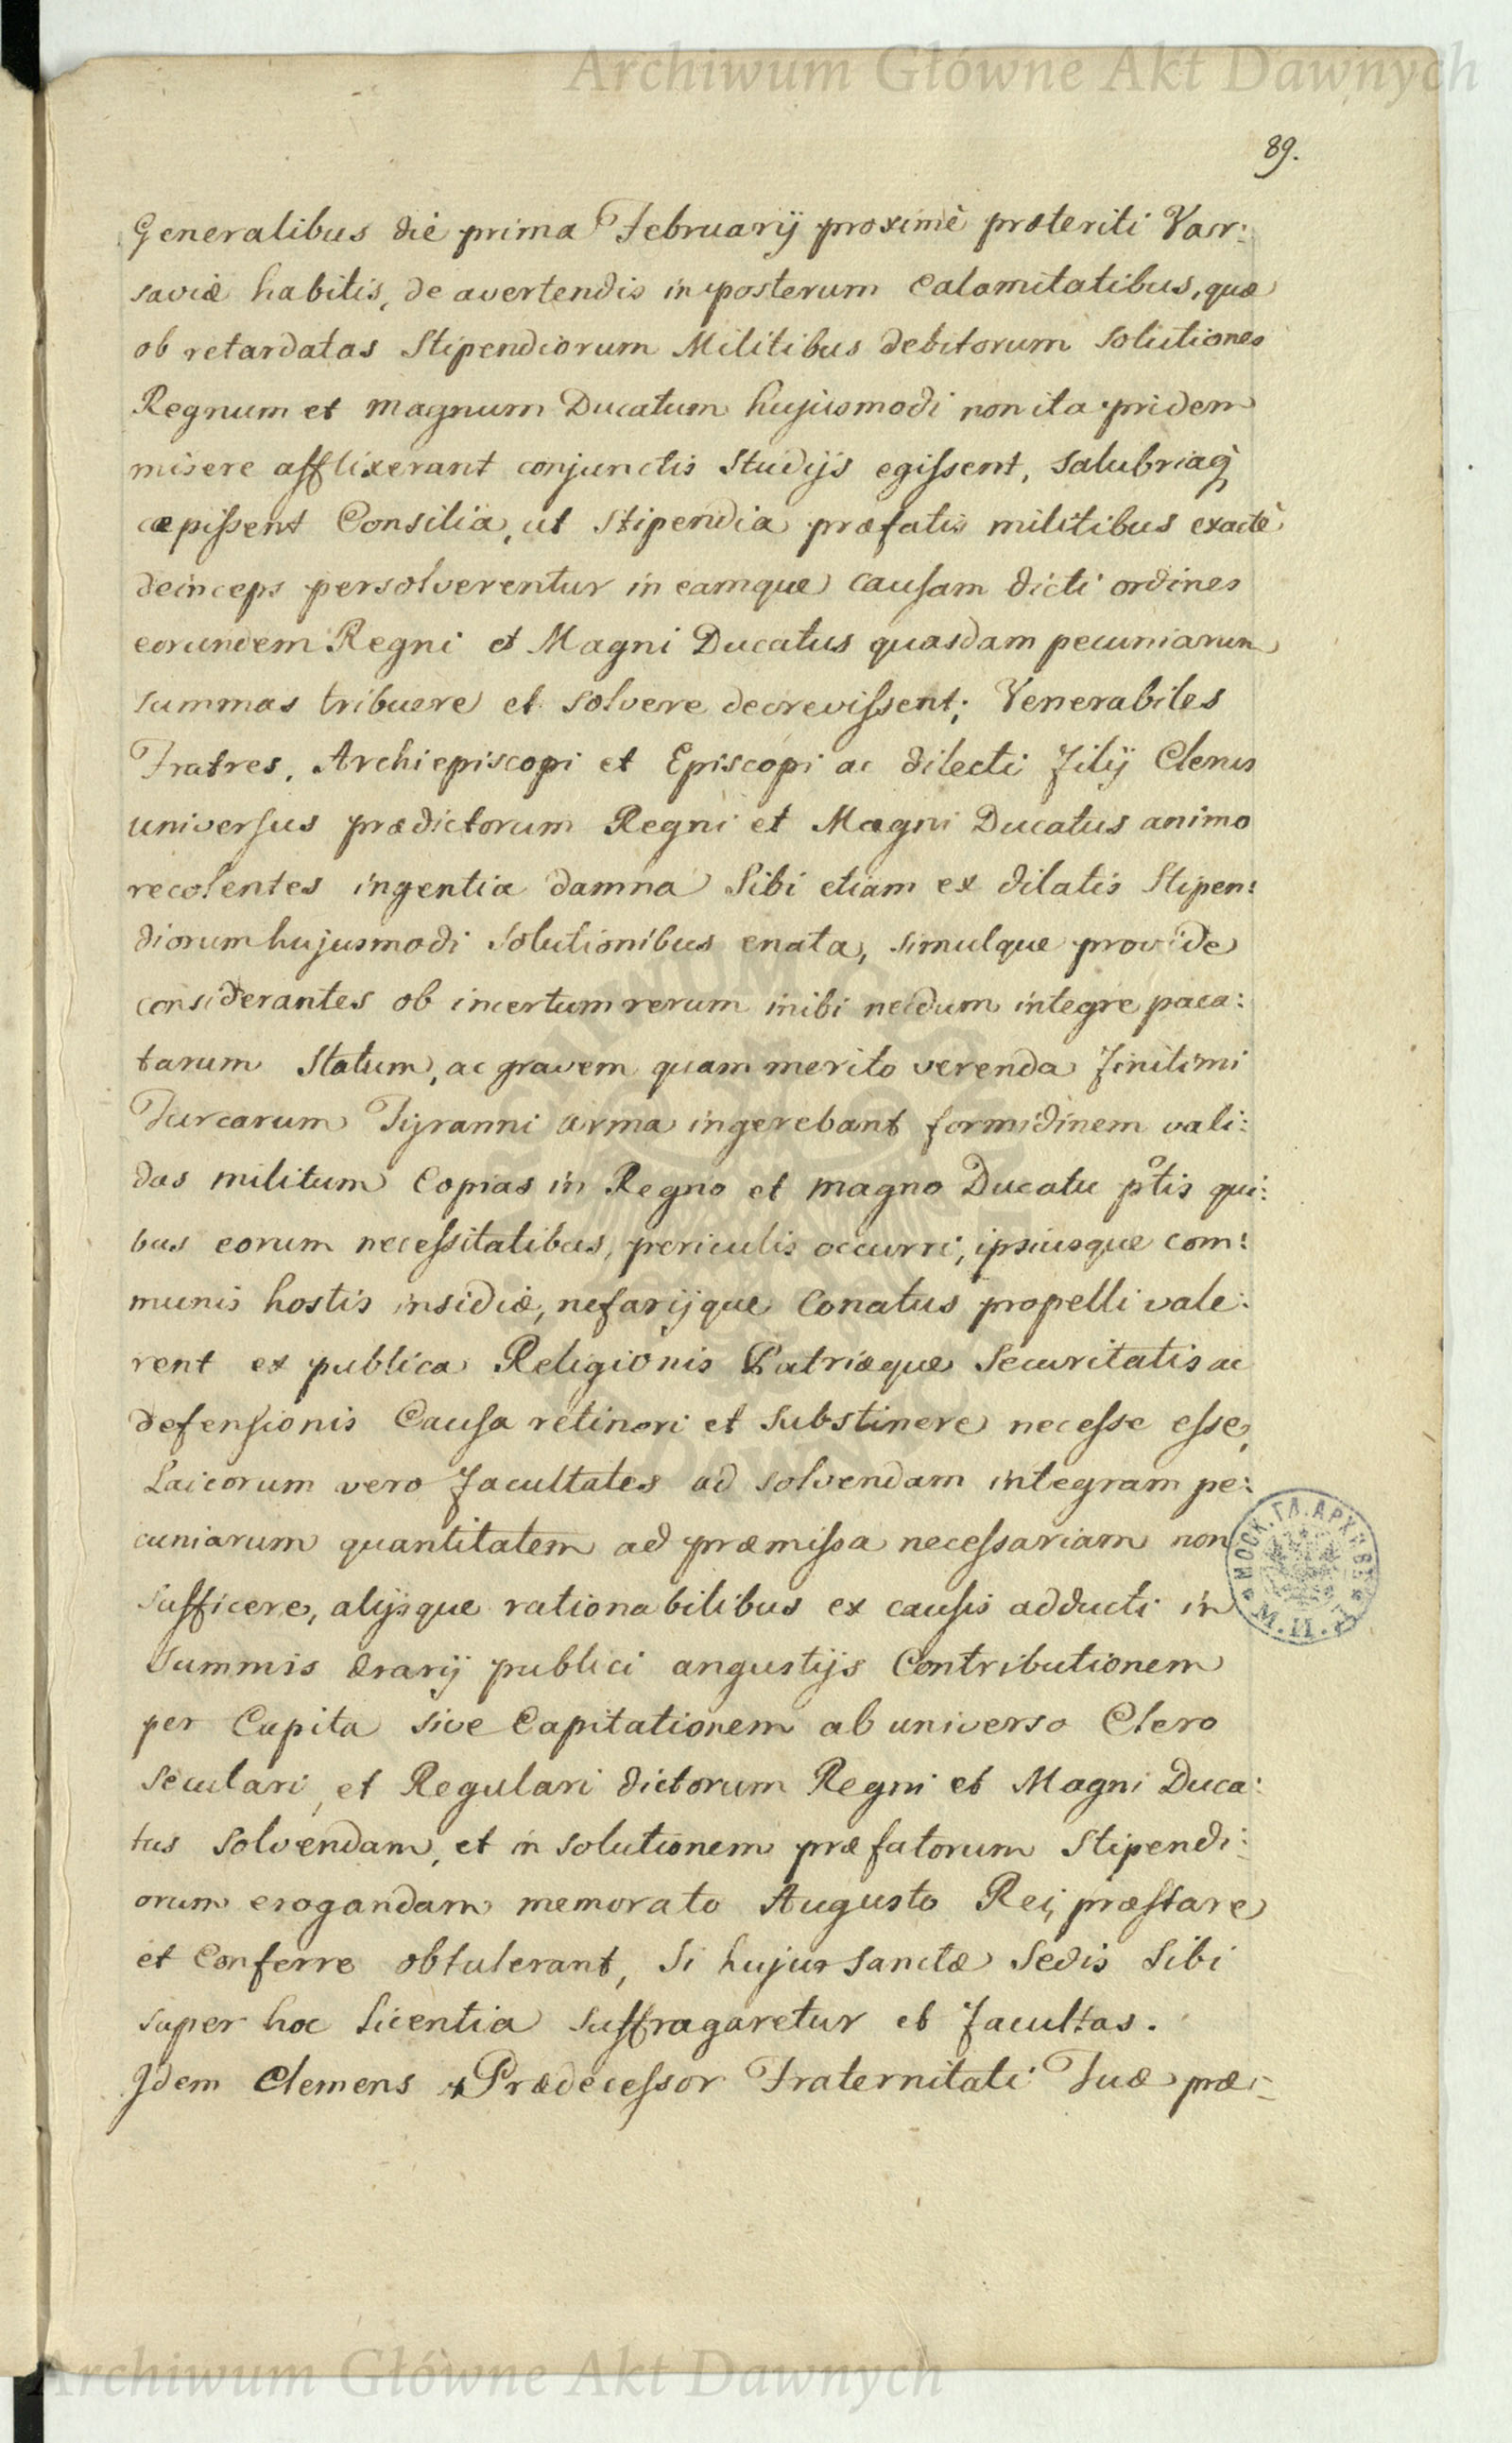 Archiwum Główne Akt Dawnych
89.
Generalibus die prima Februarij proximè præteriti Var:
saviæ habitis, de avertendis in posterum calamitatibus, quæ
ob retardatas Stipendiorum Militibus debitorum solutiones
Regnum et magnum Ducatum hujusmodi non ita pridem
misere afflixerant conjunctis studijs egissent, salubriaq
cæpissent Consilia, ut Stipendia præfatis militibus exactè
deinceps persolverentur in eamque causam dicti ordines
eorundem Regni et Magni Ducatus quasdam pecuniarum
summas tribuere et solvere decrevissent; Venerabiles
Fratres, Archiepiscopi et Episcopi ac dilecti Filij Clerus
universus prædictorum Regni et Magni Ducatus animo
recolentes ingentia damna sibi etiam ex dilatis Stipen:
diorum hujusmodi solutionibus enata, simulque provide
considerantes ob incertum rerum inibi necdum integre paca:
tarum Statum, ac gravem quam merito verenda finitimi
Turcarum Tyranni arma ingerebant formidinem vali:
das militum Copias in Regno et magno Ducatu ptis qui:
bus eorum necessitatibus, periculis occurri, ipsiusque com:
munis hostis insidiæ, nefarijque Conatus propelli vale:
rent ex publica Religionis Patriæque Securitatis ac
defensionis Causa retineri et Substinere necesse esse,
Laicorum vero facultates ad solvendam integram pe:
cuniarum quantitatem ad præmissa necessariam non
sufficere, alijsque rationabilibus ex causis adducti in
summis ærarij publici angustijs Contributionem
per Capita sive Capitationem ab universo Clero
Seculari, et Regulari dictorum Regni et Magni Duca:
tus solvendam, et in solutionem præfatorum Stipendi:
orum erogandam memorato Augusto Regi, præstare
et Conferre obtulerant, si hujus sanctæ Sedis sibi
super hoc licentia suffragaretur et facultas.
Idem Clemens Prædecessor Fraternitati Tuæ præ:
МОСК. ГЛ. АРХИВЪ
М. И. Д.
Archiwum Główne Akt Dawnych